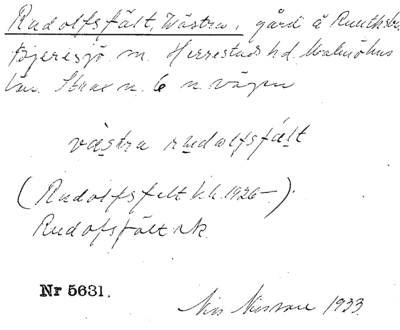 Rudolfsfält, Västra, gård å
Bjeresjö sn. Herrestads hd. Malmöhus
län. Strax n. 6 n vägen
västra rudolfsfält
(Rudolfsfelt kk. 1926–)
Rudolfsfält rk.
Nr 5631.
1933.